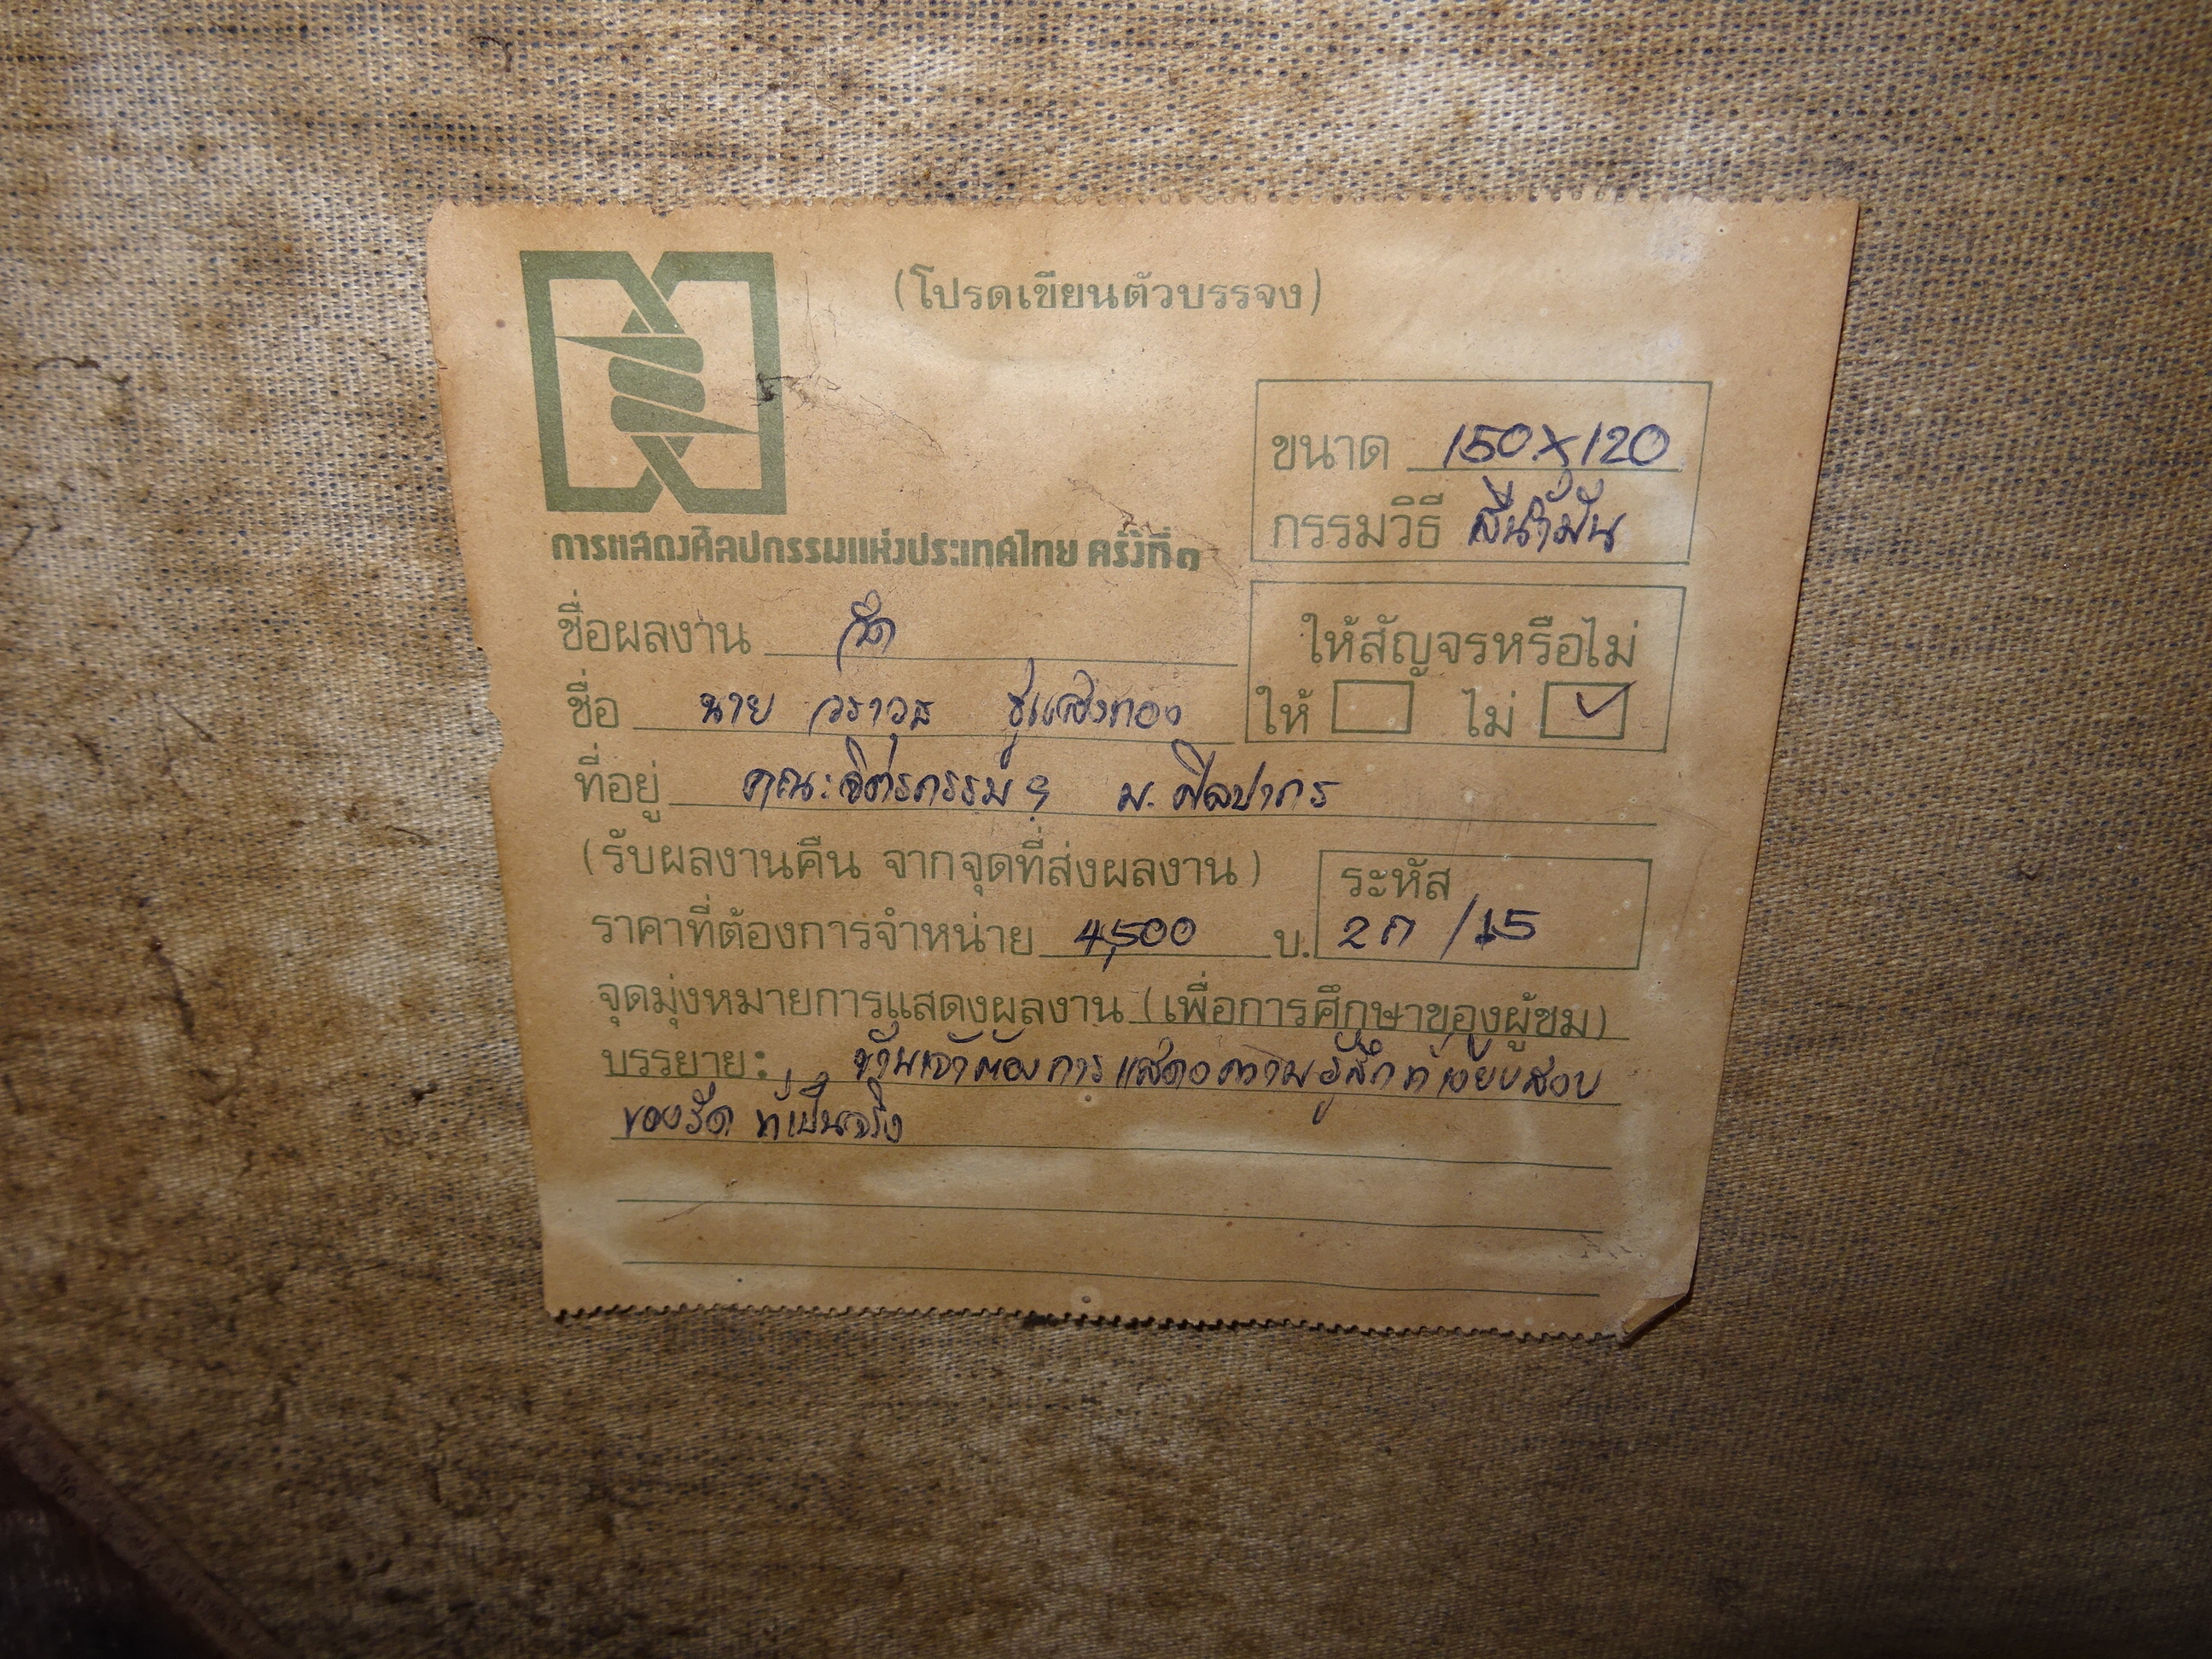 (โปรดเขียนตัวบรรจง)
ขนาด 150 x 120
กรรมวิธี สีน้ำมัน
การแสดงศิลปกรรมแห่งประเทศไทย ครั้งที่ ๑
ชื่อผลงาน วัด
ให้สัญจรหรือไม่
ชื่อ นาย วราวุธ ชูแสงทอง
ให้ ไม่ ✓
ที่อยู่ คณะจิตรกรรมฯ ม. ศิลปากร
(รับผลงานคืน จากจุดที่ส่งผลงาน)
ระหัส
ราคาที่ต้องการจำหน่าย 4,500 บ.
2ก /15
จุดมุ่งหมายการแสดงผลงาน (เพื่อการศึกษาของผู้ชม)
บรรยาย: ข้าพเจ้าต้องการแสดงความรู้สึกที่เงียบสงบ
ของวัด ที่เป็นจริง